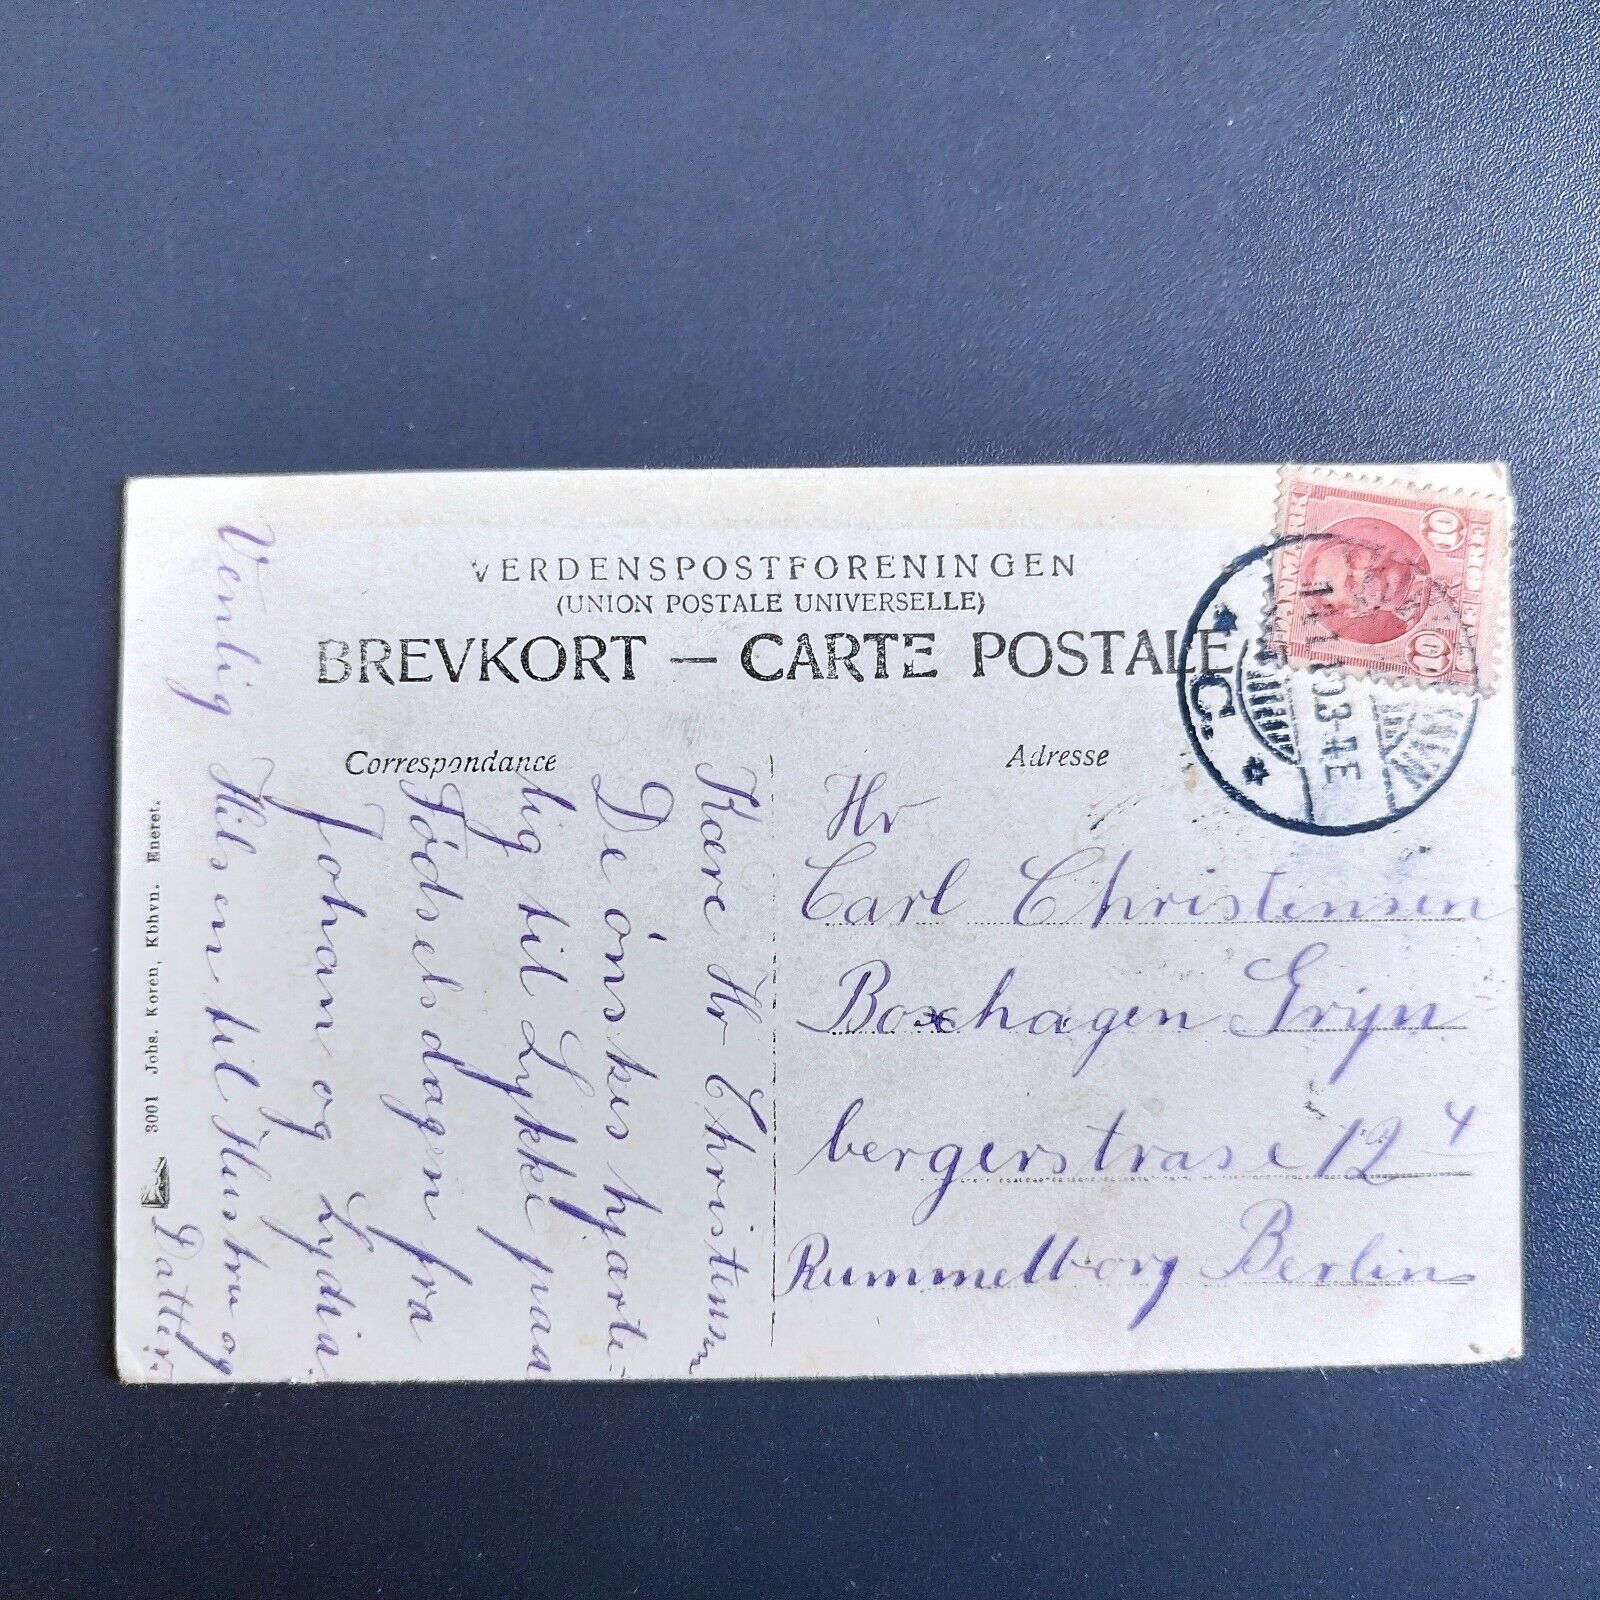 VERDENSPOSTFORENINGEN
(UNION POSTALE UNIVERSELLE)
BREVKORT — CARTE POSTALE
Correspondance
Adresse
Kære Hr Christensen
De ónskes hjarte-
lig til Lykke paa
Fódselsdagen fra
Johan og Lydia.
Venlig Hilsen til Hustru og
Datter
Hr
Carl Christensen
Boxhagen Grijn
bergerstrase 12 4
Rummelborg Berlin
3001 Johs. Koren, Kbhvn. Eneret.
DANMARK
10 10
ØRE
C.
3-4E